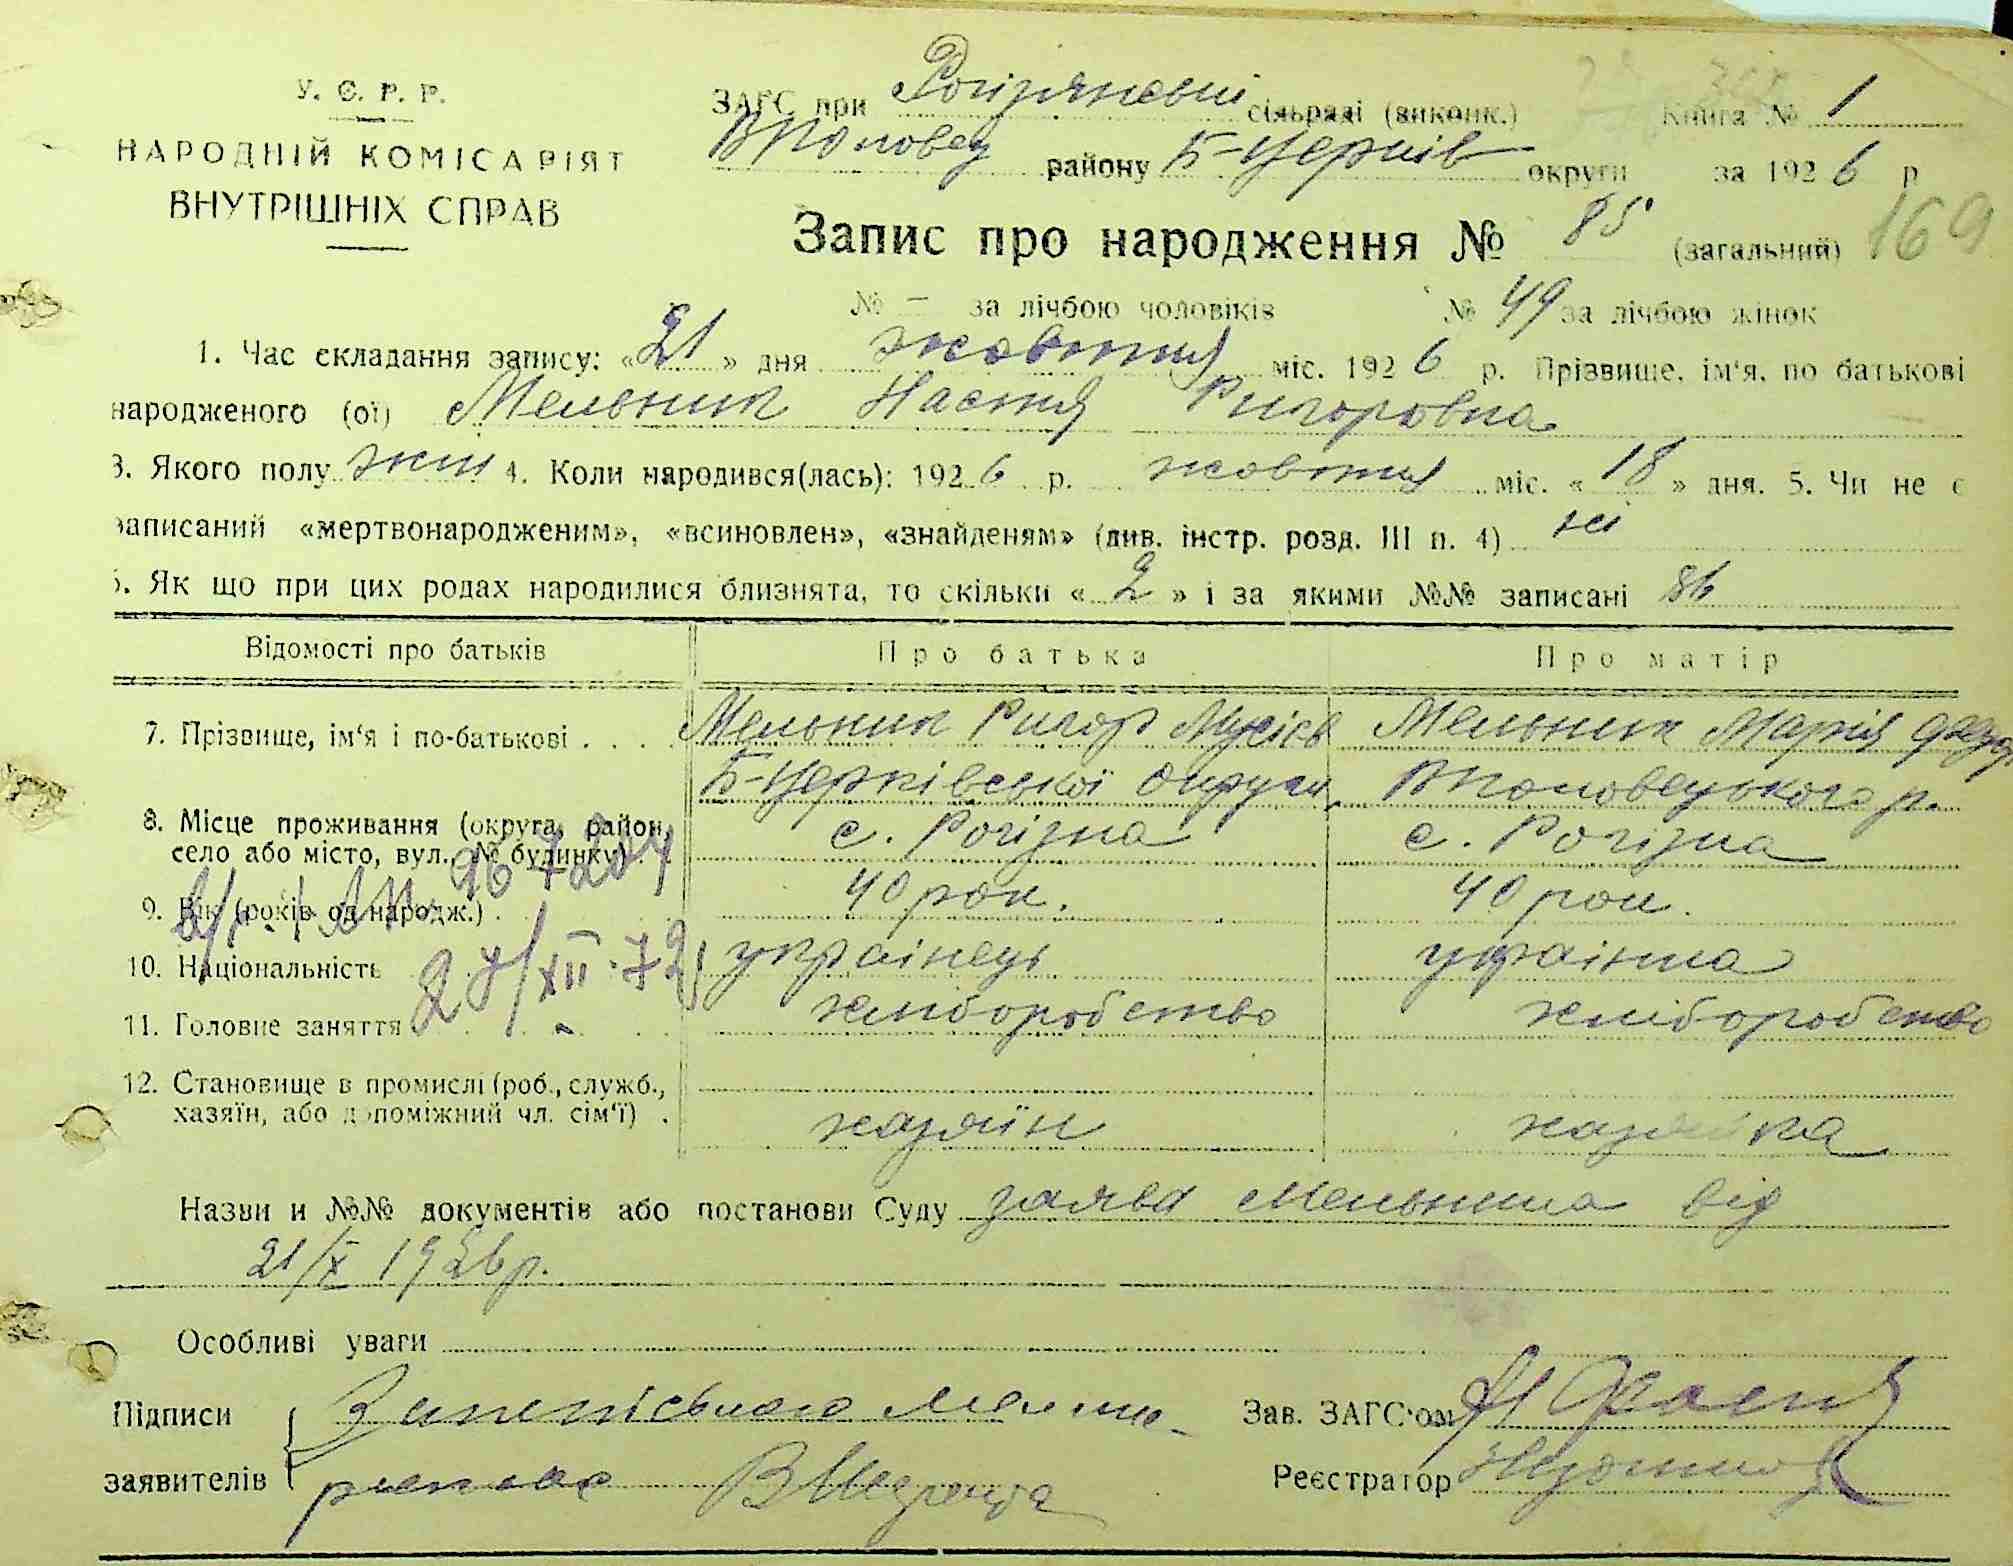 У. С. Р. Р.
НАРОДНІЙ КОМІСАРІЯТ
ВНУТРІШНІХ СПРАВ
ЗАГС при Рогізнянській сільраді (виконк.) Книга № 1
ВПоловец району Б-Церків округи за 1926 р
Запис про народження № 85 (загальний) 169
№ — за лічбою чоловіків № 49 за лічбою жінок
1. Час складання запису: «21» дня жовтня міс. 1926 р. Прізвище, ім'я, по батькові
народженого (ої) Мельник Настя Ригоровна
3. Якого полу жін 4. Коли народився(лась): 1926 р. жовтня міс. «18» дня. 5. Чи не є
записаний «мертвонародженим», «всиновлен», «знайденям» (див. інстр. розд. III п. 4) ні
6. Як що при цих родах народилися близнята, то скільки «2» і за якими №№ записані 86
Відомості про батьків Про батька Про матір
7. Прізвище, ім'я і по-батькові . . . . Мельник Ригор Мусієв Мельник Марія Федор
Б-Церківської округи, ВПоловецького р.
8. Місце проживання (округа, район,
село або місто, вул., № будинку) с. Рогізна с. Рогізна
9. Вік (років од народж.) . 40 рок. 40 рок.
10. Національність українець українка
27/XII-72
11. Головне заняття хліборобство хліборобство
12. Становище в промислі (роб., служб.,
хазяїн, або допоміжний чл. сім'ї) . хазяїн хазяйка
Назви и №№ документів або постанови Суду заява Мельника від
21/X 1926 р.
Особливі уваги
Підписи
заявителів
Зав. ЗАГС'ом
Реєстратор